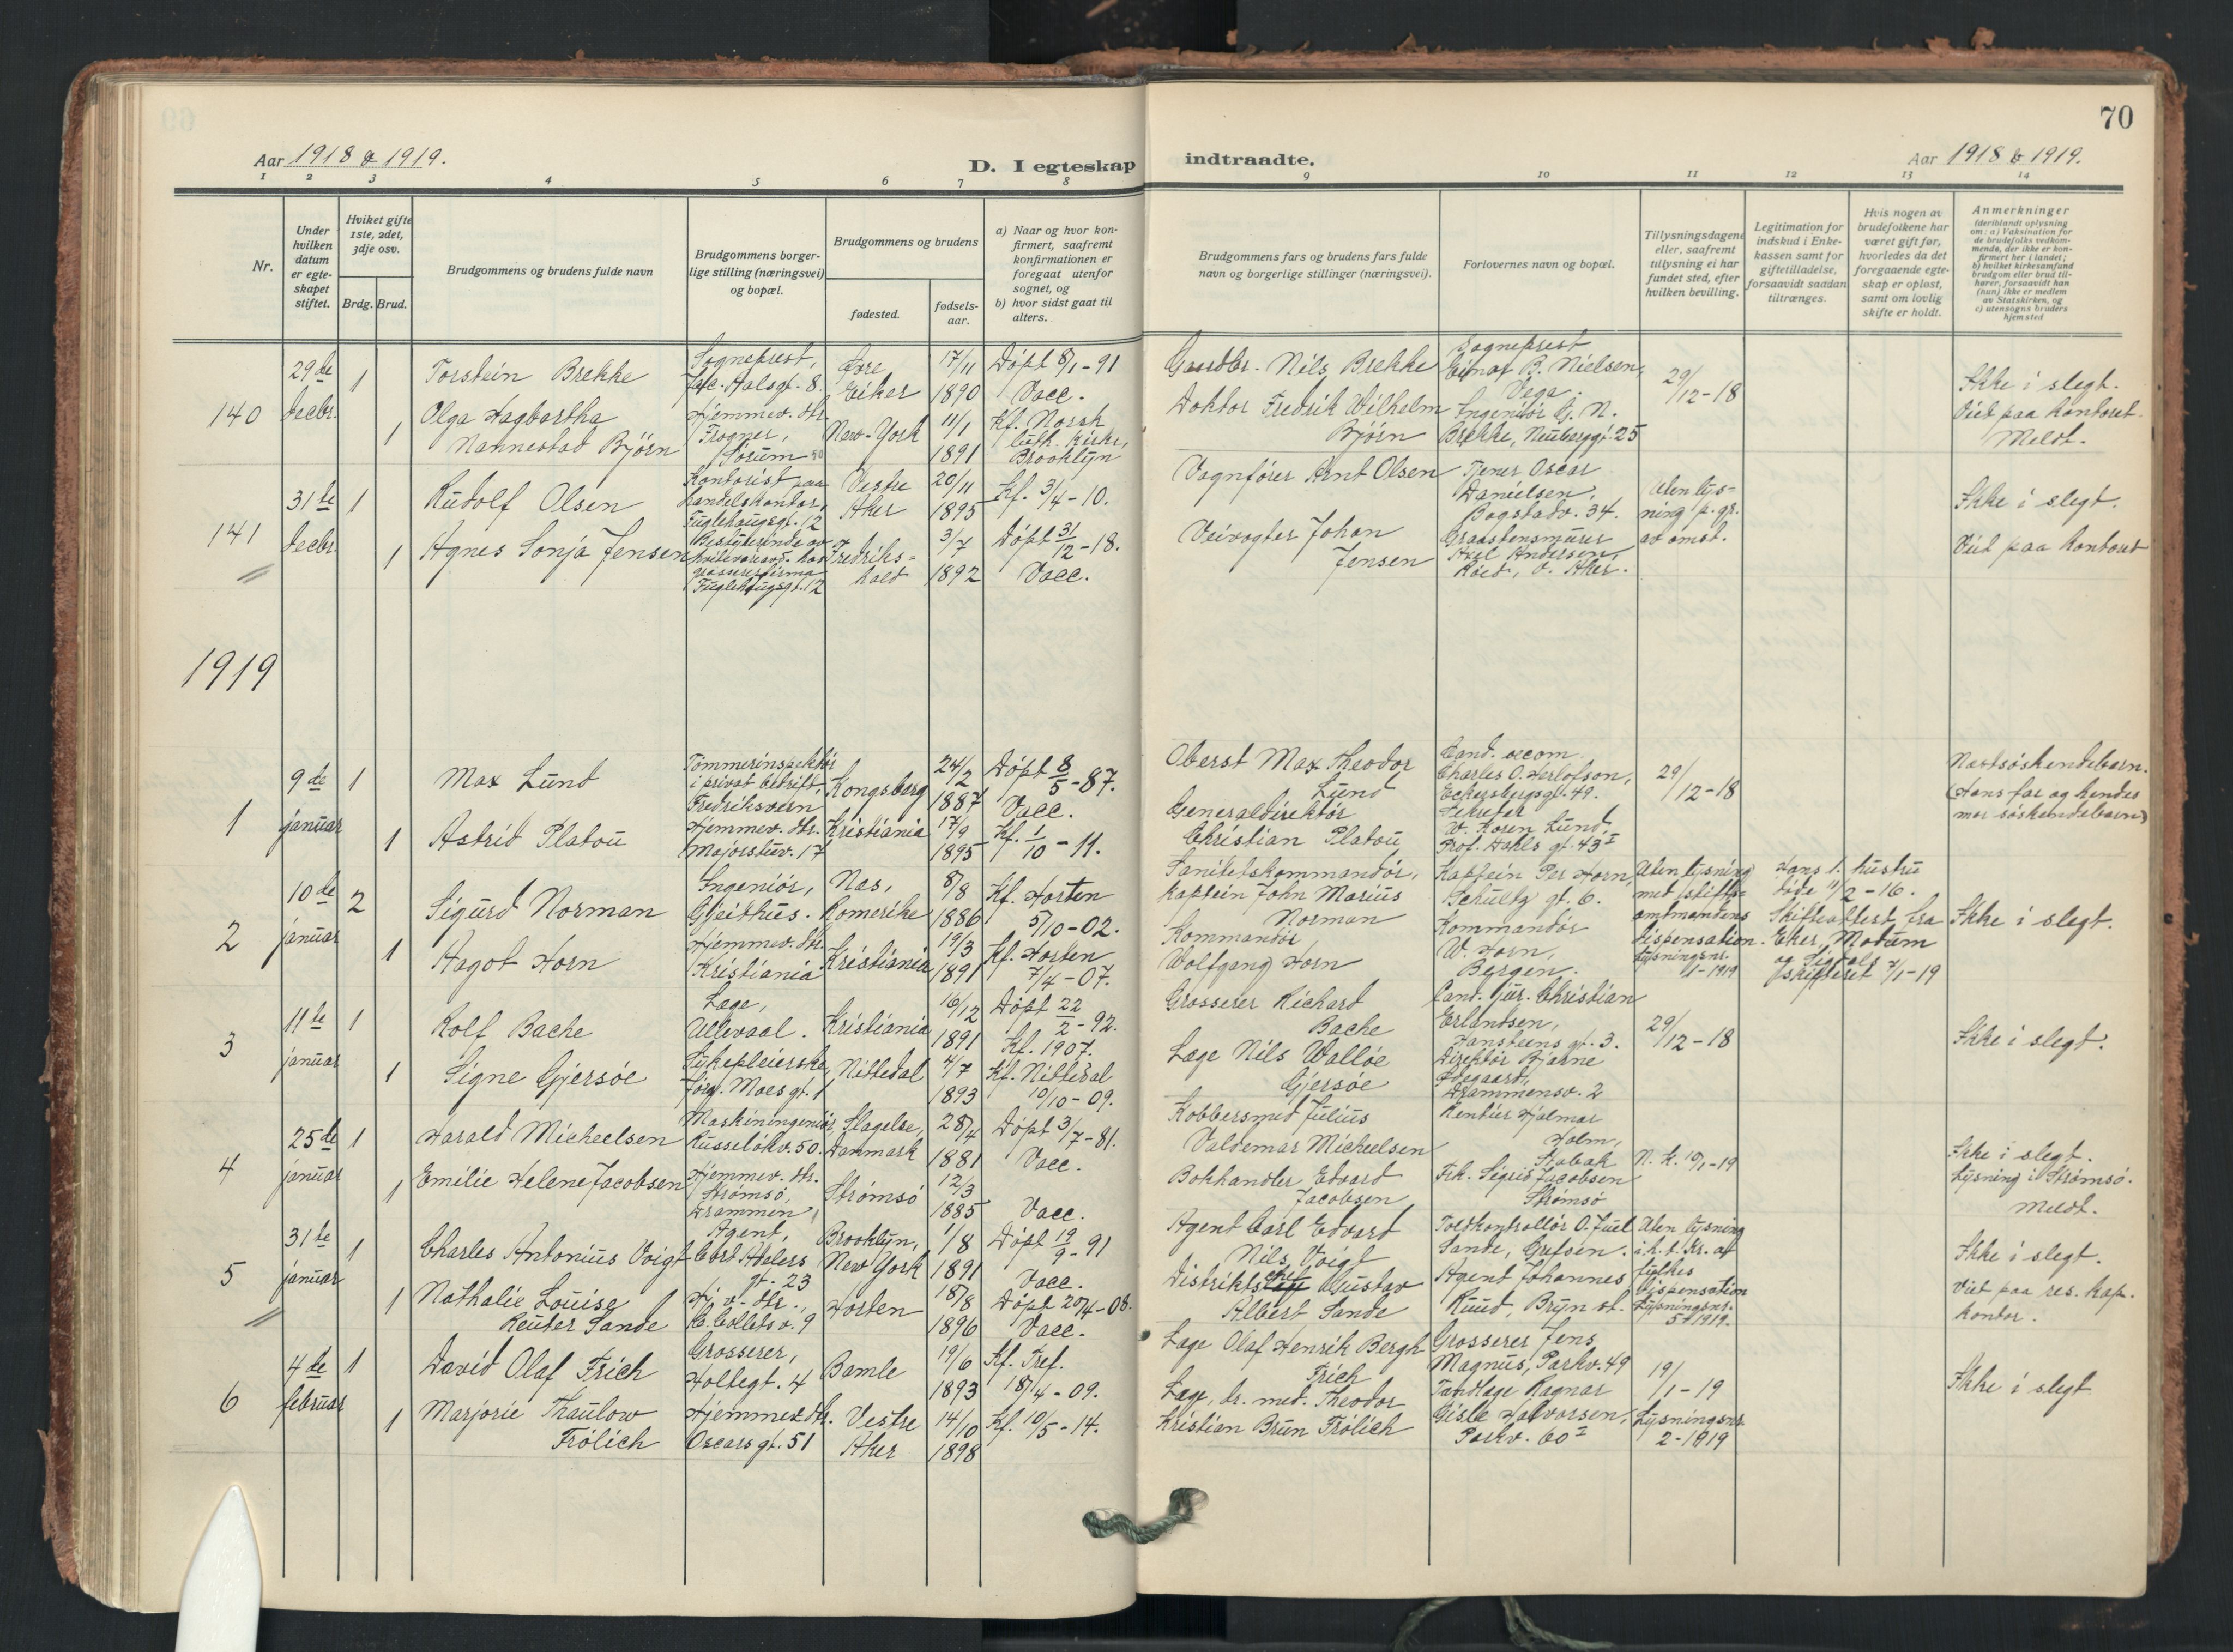 70
Aar 1918 & 1919.
D. I egteskap indtraadte.
Aar 1918 & 1919.
1 2 3 4 5 6 7 8 9 10 11 12 13 14
Nr.
Under hvilken datum er egteskapet stiftet.
Hviket gifte 1ste, 2det, 3dje osv.
Brdg. Brud.
Brudgommens og brudens fulde navn
Brudgommens borgerlige stilling (næringsvei) og bopæl.
Brudgommens og brudens
fødested.
fødsels-aar.
a) Naar og hvor konfirmert, saafremt konfirmationen er foregaat utenfor sognet, og
b) hvor sidst gaat til alters.
Brudgommens fars og brudens fars fulde navn og borgerlige stillinger (næringsvei).
Forlovernes navn og bopæl.
Tillysningsdagene eller, saafremt tillysning ei har fundet sted, efter hvilken bevilling.
Legitimation for indskud i Enkekassen samt for giftetilladelse, forsaavidt saadan tiltrænges.
Hvis nogen av brudefolkene har været gift før, hvorledes da det foregaaende egteskap er opløst, samt om lovlig skifte er holdt.
Anmerkninger
(deriblandt oplysning om: a) Vaksination for de brudefolks vedkommende, der ikke er konfirmert her i landet; b) hvilket kirkesamfund brudgom eller brud tilhører, forsaavidt han (hun) ikke er medlem av Statskirken, og c) utensogns bruders hjemsted
140
29de decbr.
1
Torstein Brekke
Sogneprest,
Øvre Eiker
17/11 1890
Døpt 8/1-91
Vacc.
Gaardbr. Nils Brekke
Sogneprest
Einar B. Nielsen,
Vega.
29/12-18
Ikke i slegt.
1
Olga Hagbartha
Nannestad Bjørn
Hjemmev. dtr.
Frogner,
Sørum
New-York
11/1 1891
Kf. Norsk
luth. kirke,
Brooklyn
Doktor Fredrik Wilhelm
Bjørn
Ingeniør G. N.
Brekke, Neuberggt. 25
Viet paa kontoret.
Meldt.
141
31te decbr.
1
Rudolf Olsen
Kontorist paa
handelskontor,
Fuglehaugsgt. 12
Vestre Aker
20/11 1895
Kf. 3/4-10.
Vognfører Arnt Olsen
Tjener Oscar
Danielsen,
Bogstadv. 34.
Uten lys-
ning p. gr.
av omst.
Ikke i slegt.
1
Agnes Sonja Jensen
Bestyrerinde av
hvitevareavd. hos
grossererfirma
Fuglehaugsgt. 12
Fredriks-
hald
3/7 1892
Døpt 31/12-18.
Vacc.
Veivogter Johan
Jensen
Graastensmurer
Axel Andersen,
Røed, V. Aker.
Viet paa kontoret
1919
1
9de januar
1
Max Lund
Tømmerinspektør
i privat bedrift,
Fredriksvern
Kongsberg
24/2 1887
Døpt 8/5-87.
Vacc.
Oberst Max Theodor
Lund
Cand. oecom
Charles O. Herlofson,
Eckersbergsgt. 49.
29/12-18
Næstsøskendebarn.
(Hans far og hendes
mor søskendebarn)
1
Astrid Platou
Hjemmev. dtr.
Majorstuv. 17
Kristiania
17/9 1895
Kf. 1/10-11.
Generaldirektør
Christian Platou
Sekretær
W. Koren Lund,
Prof. Dahls gt. 43 I
2
10de januar
2
Sigurd Norman
Ingeniør,
Gjeithus.
Nes,
Romerike
8/8 1886
Kf. Horten
5/10-02.
Sanitetskommandør,
kaptein John Marius
Norman
Kaptein Per Horn,
Schultz gt. 6.
Uten lysning
med stifts-
amtmandens
dispensation.
Lysningsnr.
1-1919
Hans 1. hustru
døde 11/2-16.
Skifteattest fra
Eker, Modum
og Sigdals
skifteret 7/1-19
Ikke i slegt.
1
Aagot Horn
Hjemmev. dtr.
Kristiania
Kristiania
19/3 1891
Kf. Horten
7/4-07.
Kommandør
Wolfgang Horn
Kommandør
W. Horn,
Bergen.
3
11te januar
1
Rolf Bache
Læge,
Ullevaal.
Kristiania
16/12 1891
Døpt 22/2-92.
Kf. 1907.
Grosserer Richard
Bache
Cand. jur. Christian
Erlandsen,
Hansteens gt. 3.
29/12-18
Ikke i slegt.
1
Signe Gjersøe
Sykepleierske
Jørg. Moes gt. 1
Nittedal
4/7 1893
Kf. Nittedal
10/10-09.
Læge Nils Walløe
Gjersøe
Direktør Bjarne
Ødegaard,
Drammensv. 2
4
25de januar
1
Harald Micheelsen
Maskiningeniør,
Russeløkv. 50.
Slagelse,
Danmark
28/4 1881
Døpt 3/7-81.
Vacc.
Kobbersmed Julius
Valdemar Micheelsen
Rentier Hjalmar
Holm,
Stabæk
N. K. 10/1-19
Ikke i slegt.
1
Emilie Helene Jacobsen
Hjemmev. dtr.
Strømsø,
Drammen
Strømsø
12/3 1885
Vacc.
Bokhandler Edvard
Jacobsen
Frk. Sigrid Jacobsen
Strømsø
Lysning i Strømsø.
Meldt.
5
31te januar
1
Charles Antonius Voigt
Agent,
Cort Adelers
gt. 23
Brooklyn,
New York
1/8 1891
Døpt 19/9-91
Vacc.
Agent Carl Edvard
Nils Voigt
Toldkontrollør O. Juul
Sande, Grefsen.
Uten lysning
i h. t. Kr. af
fylkes
dispensation
Lysningsnr.
5-1919.
Ikke i slegt.
1
Nathalie Louise
Reuter Sande
Hj. v. dtr.,
C. Collets v. 9
Horten
18/8 1896
Døpt 20/4-08.
Vacc.
Distriktschef Gustav
Albert Sande
Agent Johannes
Ruud, Bryn st.
Viet paa res. kap.
kontor.
6
4de februar
1
David Olaf Frich
Grosserer,
Holtegt. 4
Bamle
19/6 1893
Kf. Tref.
18/4-09.
Læge Olaf Henrik Bergh
Frich
Grosserer Jens
Magnus, Parkv. 49
19/1-19
Ikke i slegt
1
Marjorie Thaulow
Frølich
Hjemmev. dtr.
Oscars gt. 51
Vestre
Aker
14/10 1898
Kf. 10/5-14.
Læge, dr. med. Theodor
Kristian Brun Frølich
Tandlæge Ragnar
Gisle Halvorsen,
Parkv. 60 I
Lysningsnr.
2-1919